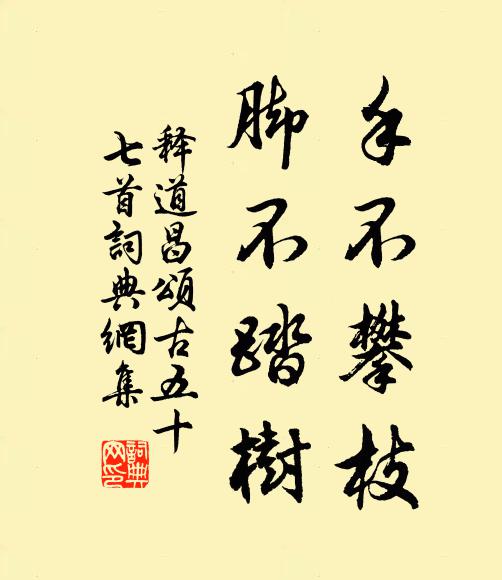 手不攀枝
脚不踏樹
释道昌頌古五十
七首詞典網集
詞典網印